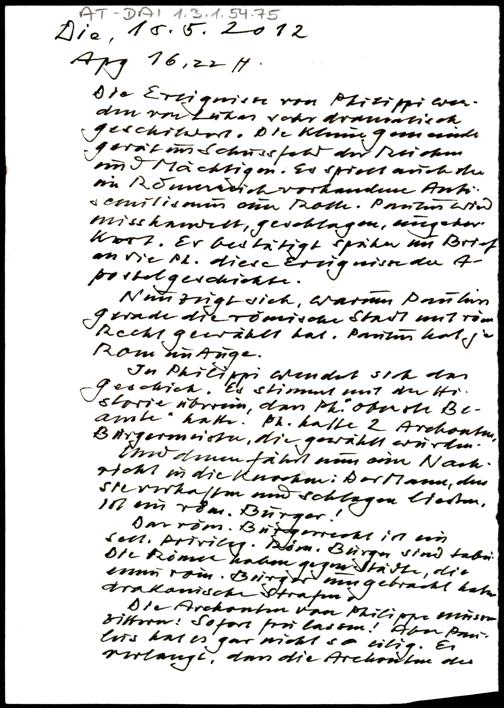 AT-DAI 1.3.1.54.75
Die, 15.5.2012
Apg 16,22 ff.
Die Ereignisse von Philippi wer-
den von Lukas sehr dramatisch
geschildert. Die kleine Gemeinde
gerät ins Schussfeld der Reichen
und Mächtigen. Es spielt auch der
im Römerreich vorhandene Anti-
semitismus eine Rolle. Paulus wird
misshandelt, geschlagen, eingeker-
kert. Er bestätigt später im Brief
an die Ph. diese Ereignisse der A-
postelgeschichte.
Nun zeigt sich, warum Paulus
gerade die römische Stadt mit röm
Recht gewählt hat. Paulus hat je
Rom im Auge.
In Philippi wendet sich das
Geschick. Es stimmt mit der Hi-
storie überein, dass Ph. "oberste Be-
amte" hatte. Ph. hatte 2 Archonten,
Bürgermeister, die gewählt wurden.
Und denen fährt nun eine Nach-
richt in die Knochen: Der Mann, den
sie verhaften und schlagen liessen,
ist ein röm. Bürger!
Das röm. Bürgerrecht ist ein
selt. Privileg. Röm. Bürger sind tabu.
Die Römer haben gegen Städte, die
einen röm. Bürger umgebracht haben
drakonische Strafen
Die Archonten von Philippi müssen
zittern: Sofort frei lassen! Aber Pau-
lus hat es gar nicht so eilig. Er
verlangt, dass die Archonten der